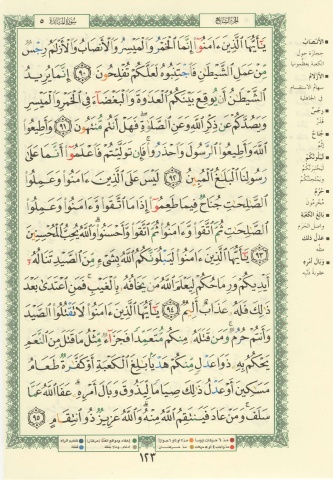 سورة المائدة ٥
الجزء السابع
يَٰٓأَيُّهَا ٱلَّذِينَ ءَامَنُوٓا۟ إِنَّمَا ٱلْخَمْرُ وَٱلْمَيْسِرُ وَٱلْأَنصَابُ وَٱلْأَزْلَٰمُ رِجْسٌ
مِّنْ عَمَلِ ٱلشَّيْطَٰنِ فَٱجْتَنِبُوهُ لَعَلَّكُمْ تُفْلِحُونَ ٩٠ إِنَّمَا يُرِيدُ
ٱلشَّيْطَٰنُ أَن يُوقِعَ بَيْنَكُمُ ٱلْعَدَٰوَةَ وَٱلْبَغْضَآءَ فِى ٱلْخَمْرِ وَٱلْمَيْسِرِ
وَيَصُدَّكُمْ عَن ذِكْرِ ٱللَّهِ وَعَنِ ٱلصَّلَوٰةِ ۖ فَهَلْ أَنتُم مُّنتَهُونَ ٩١ وَأَطِيعُوا۟
ٱللَّهَ وَأَطِيعُوا۟ ٱلرَّسُولَ وَٱحْذَرُوا۟ ۚ فَإِن تَوَلَّيْتُمْ فَٱعْلَمُوٓا۟ أَنَّمَا عَلَىٰ
رَسُولِنَا ٱلْبَلَٰغُ ٱلْمُبِينُ ٩٢ لَيْسَ عَلَى ٱلَّذِينَ ءَامَنُوا۟ وَعَمِلُوا۟
ٱلصَّٰلِحَٰتِ جُنَاحٌ فِيمَا طَعِمُوٓا۟ إِذَا مَا ٱتَّقَوا۟ وَّءَامَنُوا۟ وَعَمِلُوا۟
ٱلصَّٰلِحَٰتِ ثُمَّ ٱتَّقَوا۟ وَّءَامَنُوا۟ ثُمَّ ٱتَّقَوا۟ وَّأَحْسَنُوا۟ ۗ وَٱللَّهُ يُحِبُّ ٱلْمُحْسِنِينَ
٩٣ يَٰٓأَيُّهَا ٱلَّذِينَ ءَامَنُوا۟ لَيَبْلُوَنَّكُمُ ٱللَّهُ بِشَىْءٍ مِّنَ ٱلصَّيْدِ تَنَالُهُۥٓ
أَيْدِيكُمْ وَرِمَاحُكُمْ لِيَعْلَمَ ٱللَّهُ مَن يَخَافُهُۥ بِٱلْغَيْبِ ۚ فَمَنِ ٱعْتَدَىٰ بَعْدَ
ذَٰلِكَ فَلَهُۥ عَذَابٌ أَلِيمٌ ٩٤ يَٰٓأَيُّهَا ٱلَّذِينَ ءَامَنُوا۟ لَا تَقْتُلُوا۟ ٱلصَّيْدَ
وَأَنتُمْ حُرُمٌ ۚ وَمَن قَتَلَهُۥ مِنكُم مُّتَعَمِّدًا فَجَزَآءٌ مِّثْلُ مَا قَتَلَ مِنَ ٱلنَّعَمِ
يَحْكُمُ بِهِۦ ذَوَا عَدْلٍ مِّنكُمْ هَدْيًۢا بَٰلِغَ ٱلْكَعْبَةِ أَوْ كَفَّٰرَةٌ طَعَامُ
مَسَٰكِينَ أَوْ عَدْلُ ذَٰلِكَ صِيَامًا لِّيَذُوقَ وَبَالَ أَمْرِهِۦ ۗ عَفَا ٱللَّهُ عَمَّا
سَلَفَ ۚ وَمَنْ عَادَ فَيَنتَقِمُ ٱللَّهُ مِنْهُ ۗ وَٱللَّهُ عَزِيزٌ ذُو ٱنتِقَامٍ ٩٥
١٢٣
الأنصاب
حجارة حول
الكعبة يعظمونها
الأزلام
سهام الاستقسام
في الجاهلية
رجس
قذر
جناح
إثم
ليبلونكم
ليختبرنكم
ويمتحننكم
حرم
محرمون
بالغ الكعبة
واصل الحرم
عدل ذلك
مثله
وبال أمره
عقوبة ذنبه